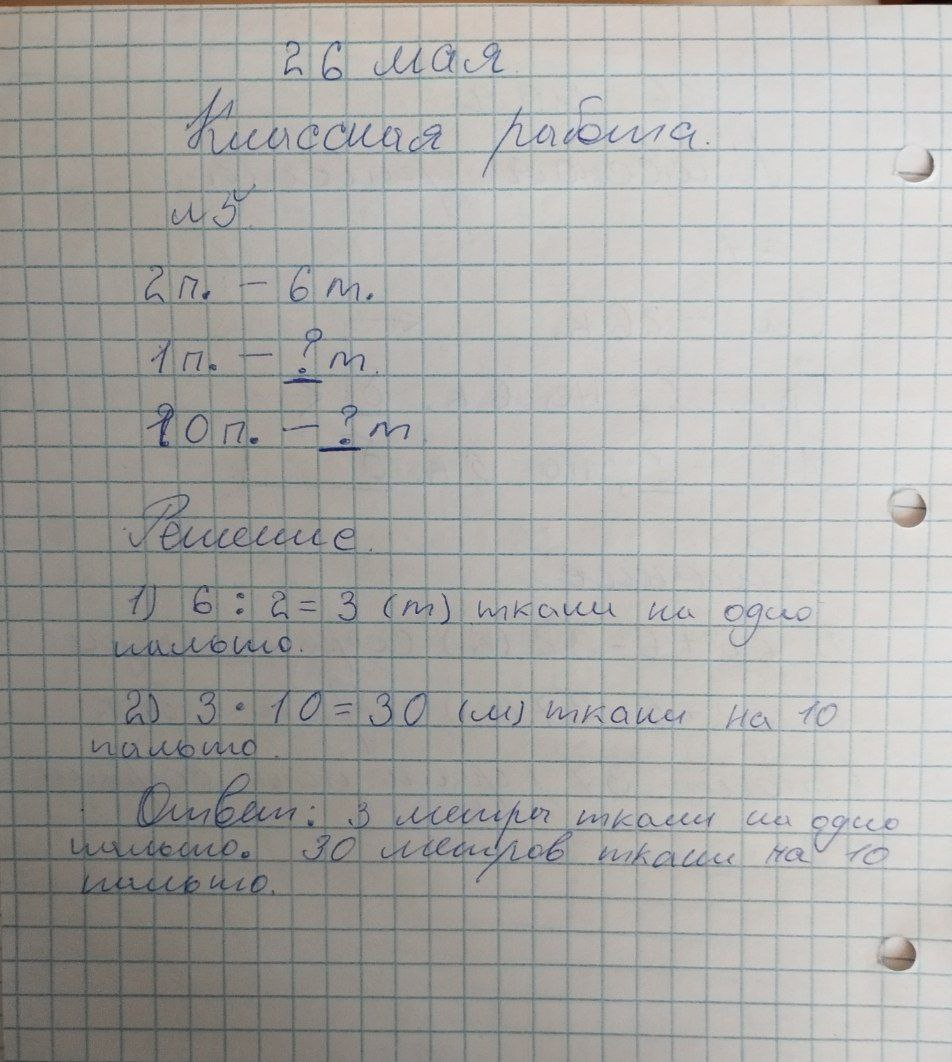 26 мая.
Классная работа.
№5.
2п. – 6т.
1п. – ?т.
10п. – ?т
Решение.
1) 6 : 2 = 3 (т) ткани на одно
пальто.
2) 3 · 10 = 30 (м) ткани на 10
пальто.
Ответ: 3 метры ткани на одно
пальто. 30 метров ткани на 10
пальто.